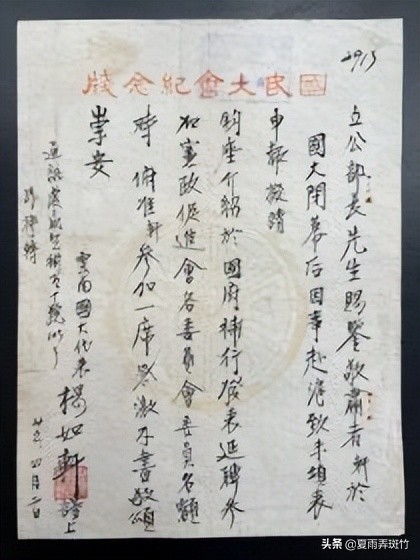 2915
國民大會紀念牋
立公部長先生賜鑒敬肅者軒於
國大閉幕后因事赴滬致未填表
申報擬請
鈞座介紹於國府補行發表延聘參
加憲政促進會各委員會委員名額
時俯准軒參加一席感激不盡敬頌
崇安
雲南國大代表楊如軒謹上
四月二日
通訊處成賢街
头条 @夏雨弄斑竹